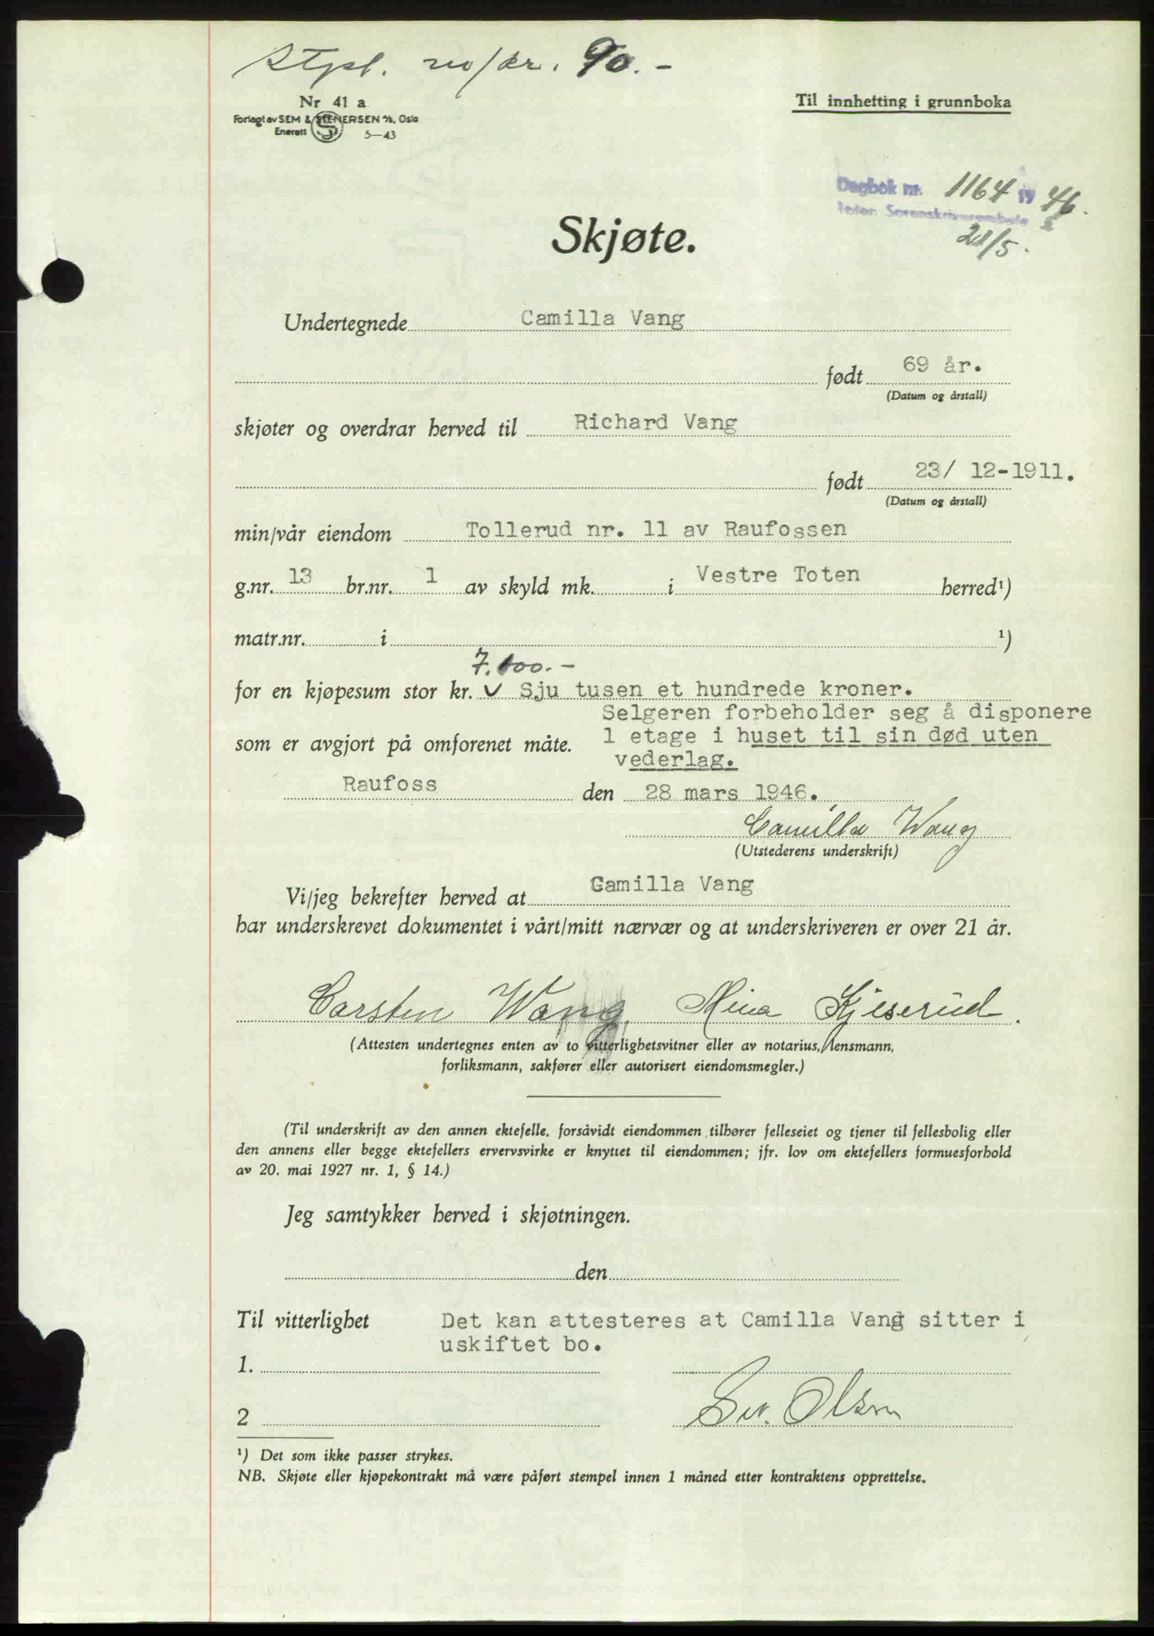 Stpl. m/kr. 90.-
Nr 41 a
Forlagt av SEM & STENERSEN A/S, Oslo
Enerett S 5—43
Til innhetting i grunnboka
Dagbok nr. 1164 19 46.
Toten Sorenskriverembete
28/5.
Skjøte.
Undertegnede Camilla Vang
født 69 år.
(Datum og årstall)
skjøter og overdrar herved til Richard Vang
født 23/ 12-1911.
(Datum og årstall)
min/vår eiendom Tollerud nr. 11 av Raufossen
g.nr. 13 br.nr. 1 av skyld mk. i Vestre Toten herred¹)
matr.nr. i ¹)
7.100.-
for en kjøpesum stor kr. V Sju tusen et hundrede kroner.
Selgeren forbeholder seg å disponere
som er avgjort på omforenet måte. 1 etage i huset til sin død uten
vederlag.
Raufoss den 28 mars 1946.
Camilla Wang
(Utstederens underskrift)
Vi/jeg bekrefter herved at Camilla Vang
har underskrevet dokumentet i vårt/mitt nærvær og at underskriveren er over 21 år.
Carsten Wang. Mina Kjeserud.
(Attesten undertegnes enten av to vitterlighetsvitner eller av notarius, lensmann,
forliksmann, sakfører eller autorisert eiendomsmegler.)
(Til underskrift av den annen ektefelle, forsåvidt eiendommen tilhører felleseiet og tjener til fellesbolig eller
den annens eller begge ektefellers ervervsvirke er knyttet til eiendommen; jfr. lov om ektefellers formuesforhold
av 20. mai 1927 nr. 1, § 14.)
Jeg samtykker herved i skjøtningen.
den
Til vitterlighet Det kan attesteres at Camilla Vang sitter i
uskiftet bo.
1.
2 Olsen
¹) Det som ikke passer strykes.
NB. Skjøte eller kjøpekontrakt må være påført stempel innen 1 måned etter kontraktens opprettelse.